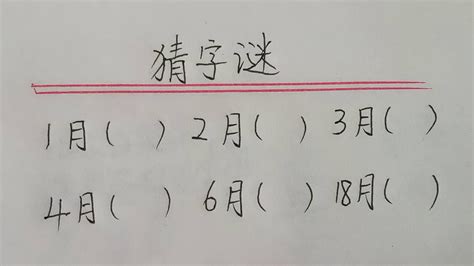 猜字谜
1月( ) 2月( ) 3月( )
4月( ) 6月( ) 18月( )